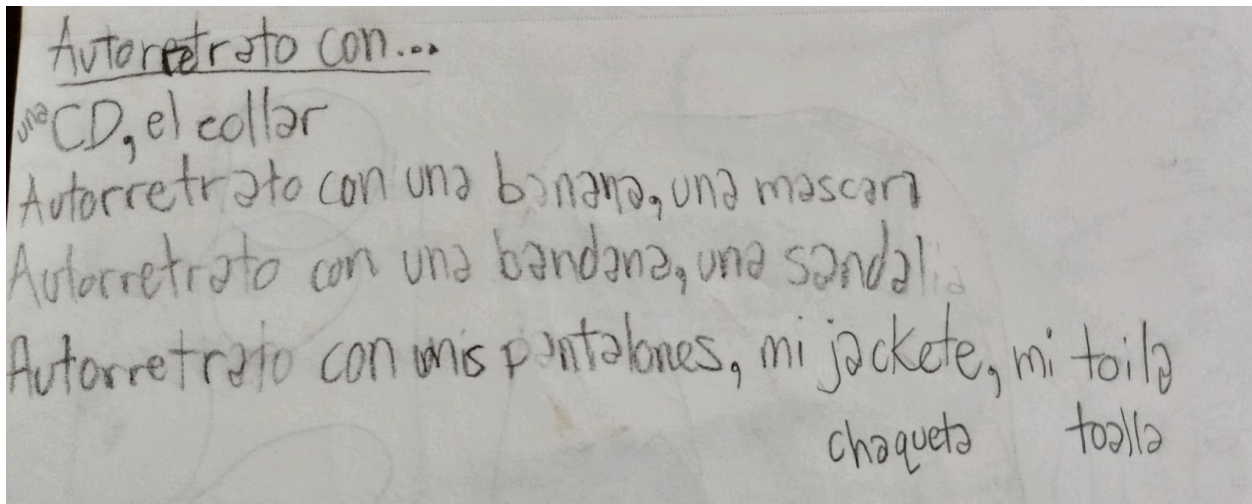 Autoretrato con...
una CD, el collar
Autorretrato con una banana, una mascara
Autorretrato con una bandana, una sandalia
Autorretrato con mis pantalones, mi jackete, mi toila
chaqueta toalla